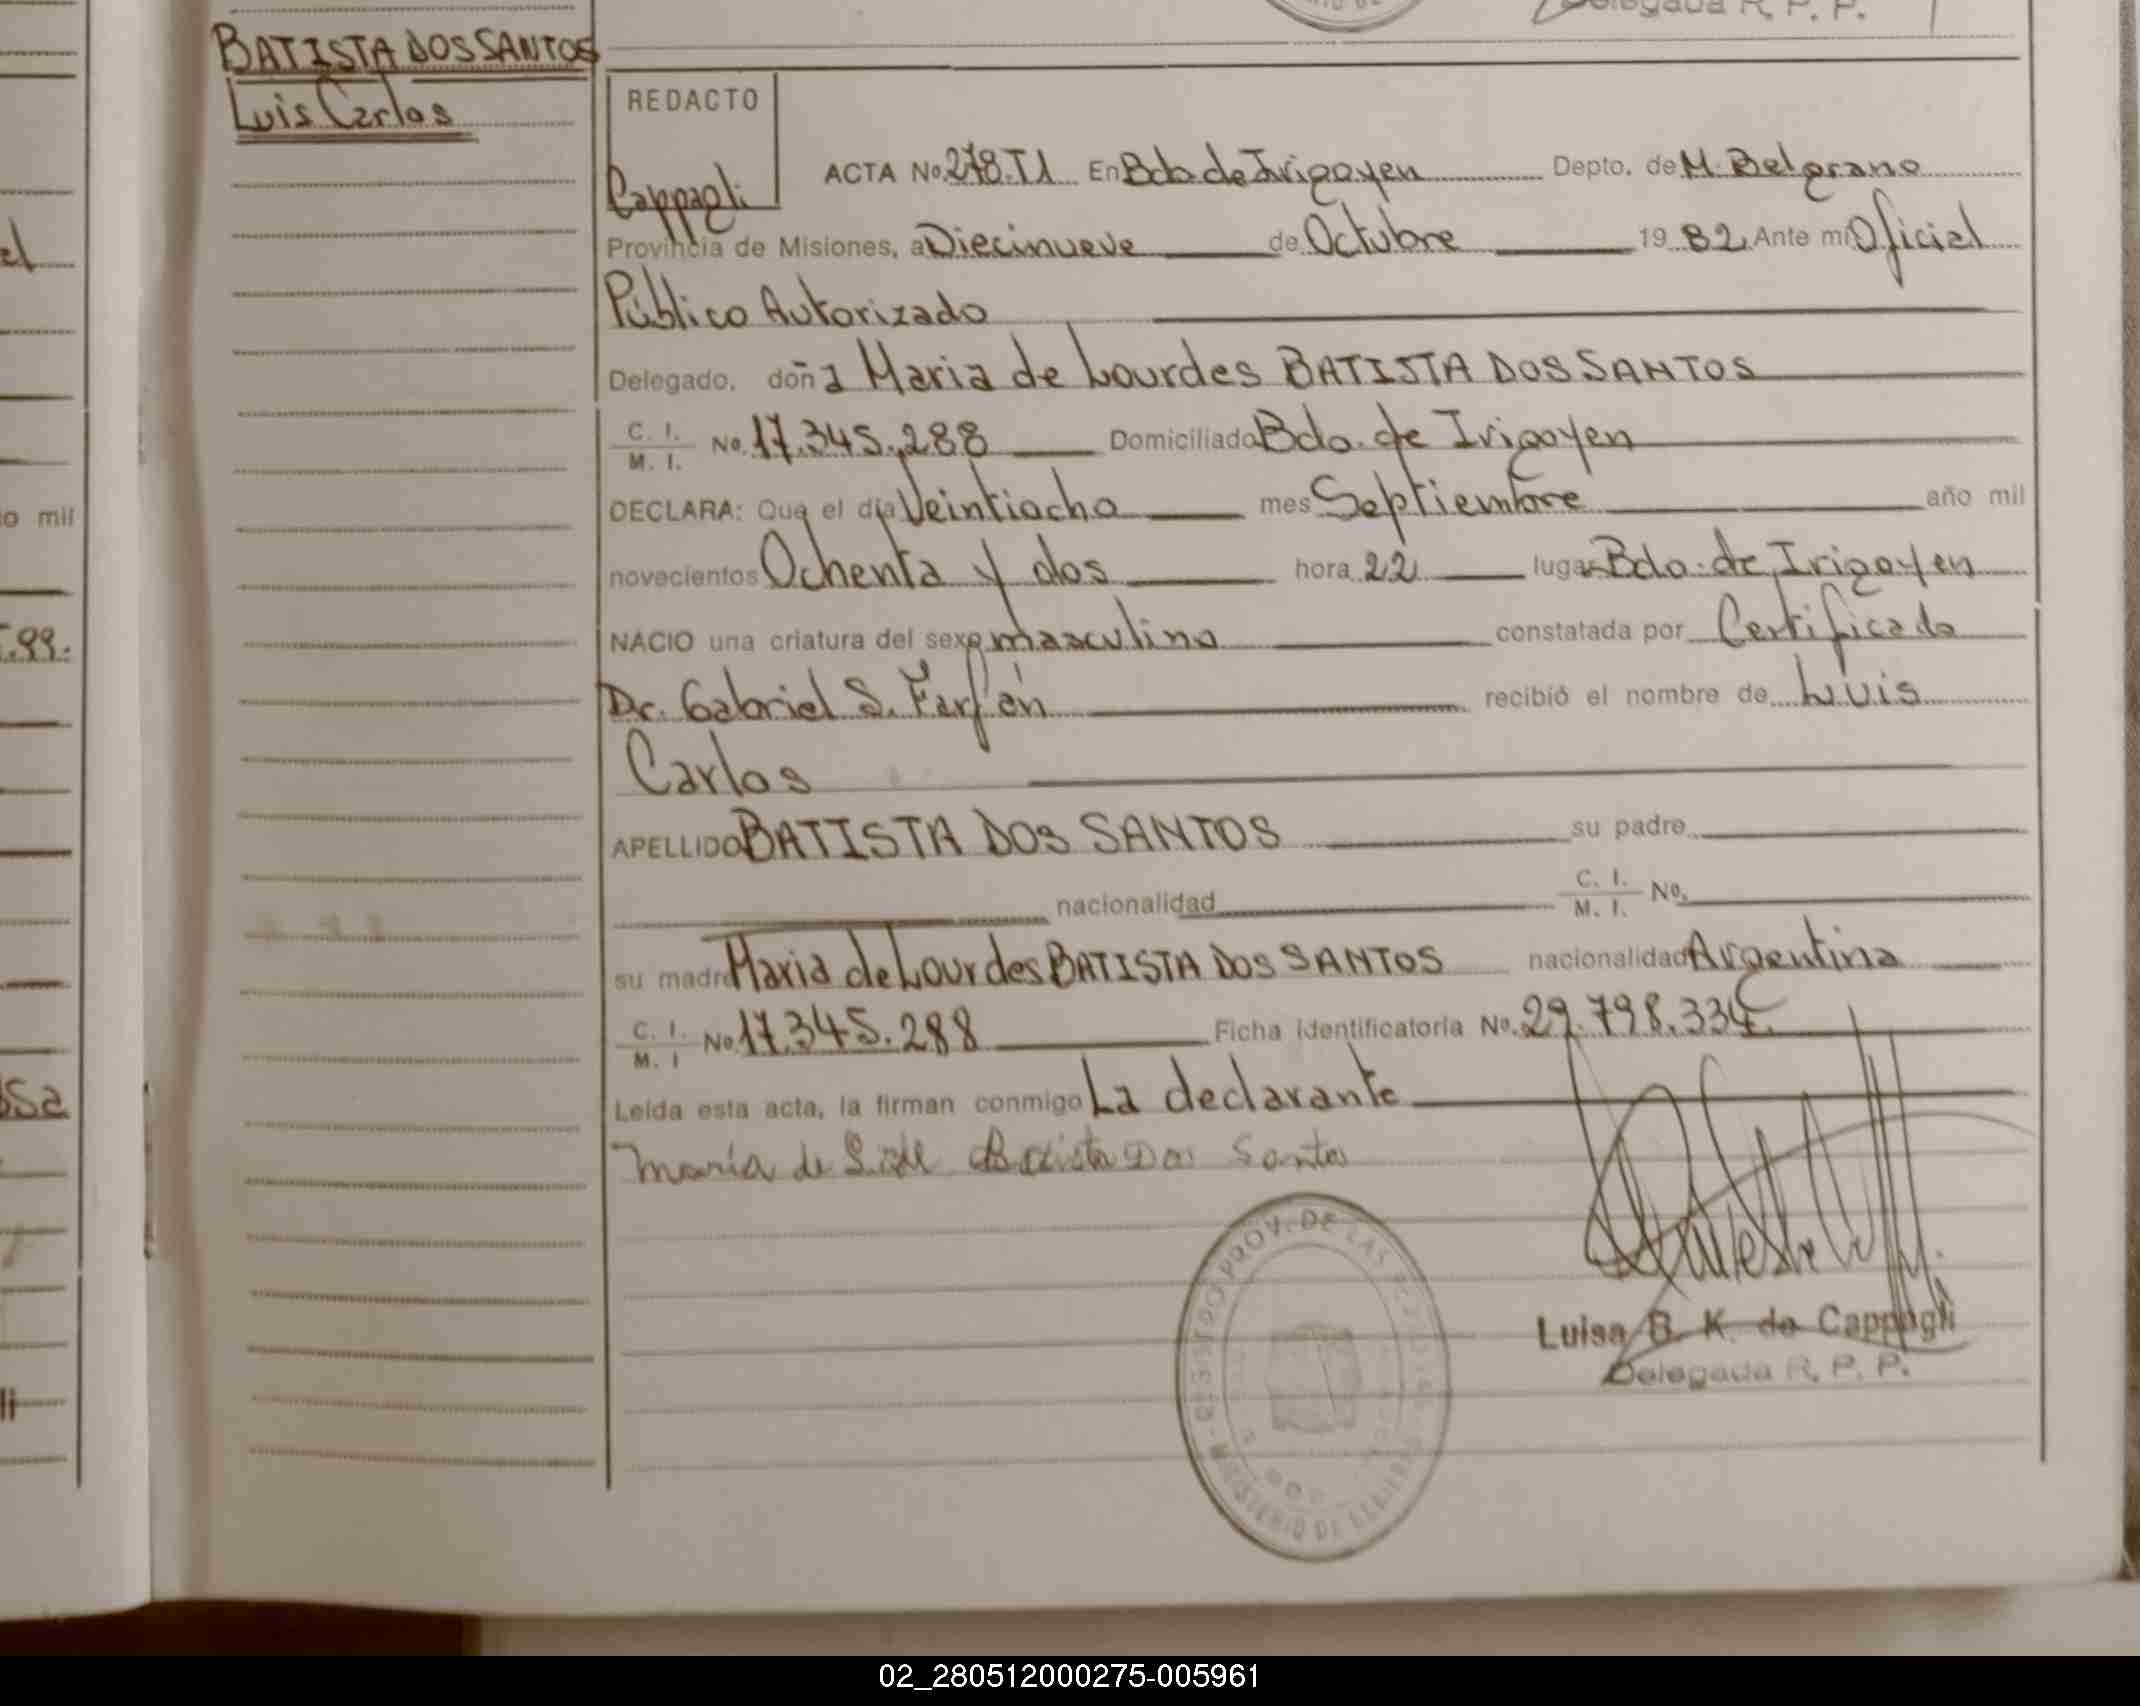 Delegada R. P. P.
BATISTA DOS SANTOS
Luis Carlos
REDACTO
Cappagli
ACTA No. 278.T1 En Bdo de Irigoyen Depto. de M. Belgrano
Provincia de Misiones, a Diecinueve de Octubre 19 82 Ante mi Oficial
Público Autorizado
Delegado, doña Maria de Lourdes BATISTA DOS SANTOS
C. I. / M. I. No. 17.345.288 Domiciliado Bdo. de Irigoyen
DECLARA: Que el día Veintiocho mes Septiembre año mil
novecientos Ochenta y dos hora 22 lugar Bdo. de Irigoyen
NACIO una criatura del sexo masculino constatada por Certificado
Dr. Gabriel S. Farfán recibió el nombre de Luis
Carlos
APELLIDO BATISTA DOS SANTOS su padre
nacionalidad C. I. / M. I. No.
su madre Maria de Lourdes BATISTA DOS SANTOS nacionalidad Argentina
C. I. / M. I No. 17.345.288 Ficha identificatoria No. 29.798.334.
Leída esta acta, la firman conmigo La declarante
maría de Batista Dos Santos
PROV. DE LAS
MINISTERIO DE
Luisa B. K. de Cappagli
Delegada R. P. P.
el
o mil
.99.
sa
li
02_280512000275-005961